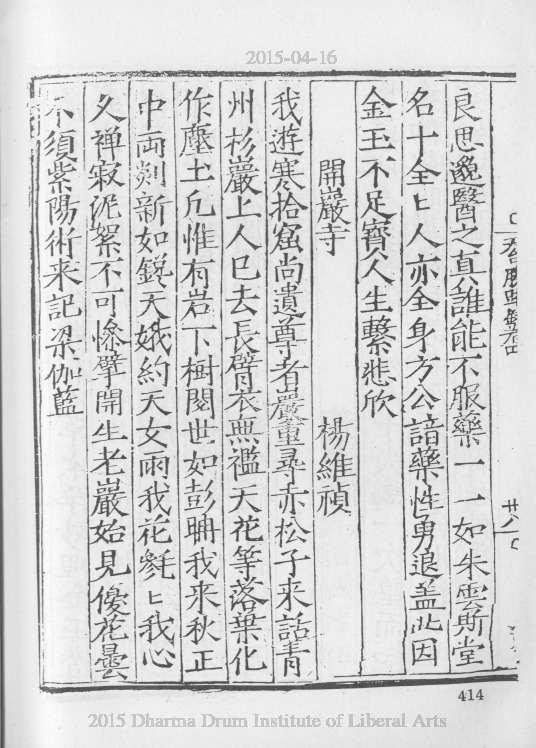 2015-04-16
廿八
良思邈醫之真誰能不服藥一一如朱雲斯堂
名十全匕人亦全身方公諳藥性勇退盖此因
金玉不足寳人生繫悲欣
開巖寺 楊維禎
我遊寒拾窟尚遺尊者巖重尋赤松子来話青
州杉巖上人已去長臂衣無襤天花等落葉化
作塵土凡惟有岩下樹閱世如彭聃我来秋正
中両剡新如鋭天娥約天女雨我花毿匕我心
久禅寂泥絮不可慘擘開生老巖始見優花曇
不須紫陽術来記梁伽藍
414
2015 Dharma Drum Institute of Liberal Arts